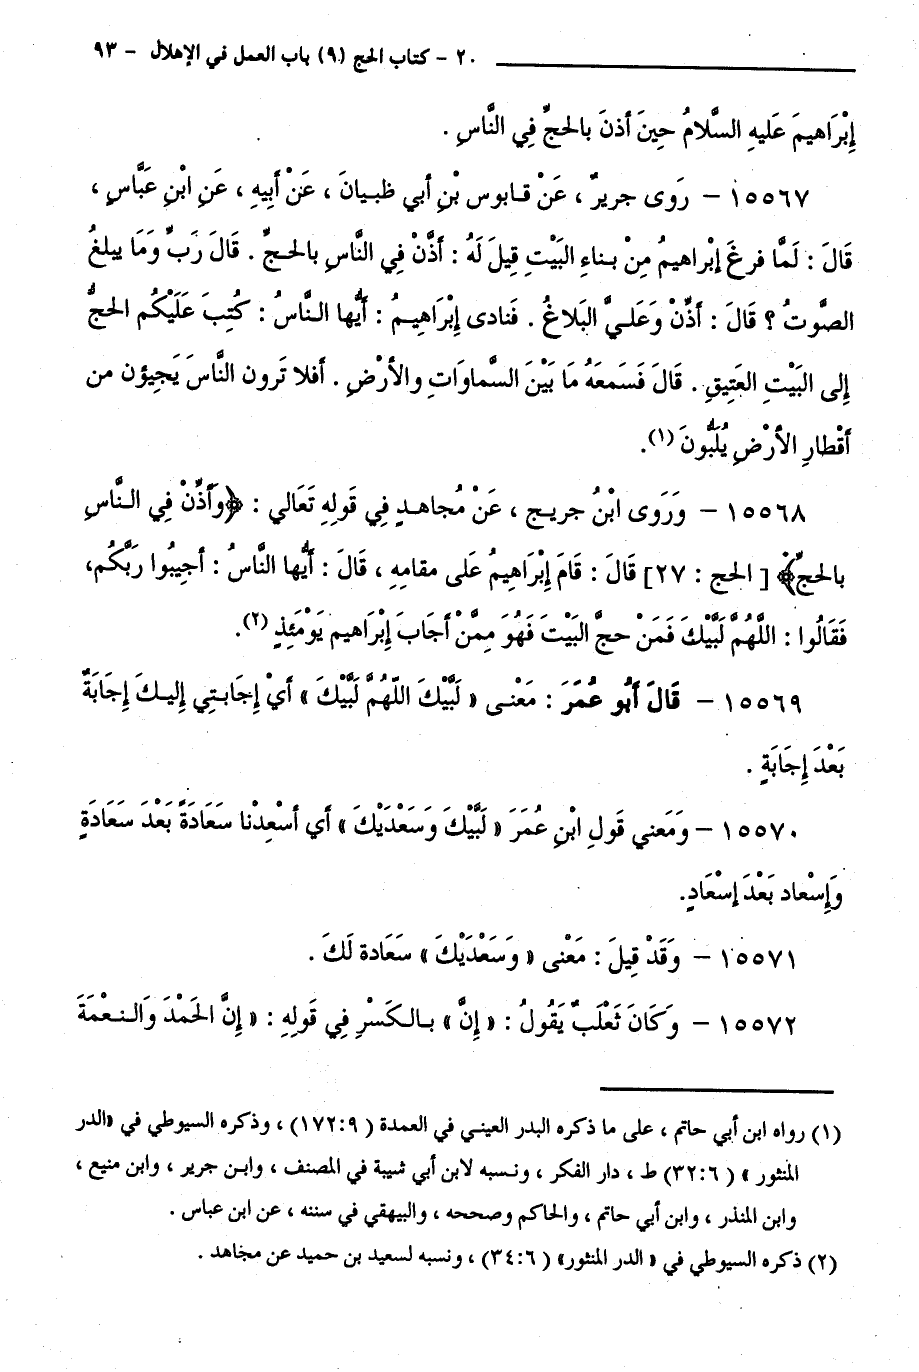 ٢٠ - كتاب الحج (٩) باب العمل في الإهلال - ٩٣
إِبْرَاهيمَ عَليهِ السَّلامُ حِينَ أذنَ بالحجِّ فِي النَّاسِ .
١٥٥٦٧ – رَوى جريرٌ ، عَنْ قابوس بْنِ أبي ظبيانَ ، عَنْ أبِيهِ ، عَنِ ابْنِ عَبَّاسٍ ،
قَالَ : لَمَّا فرغَ إبْراهيمُ مِنْ بناءِ البَيْتِ قِيلَ لَهُ : أذِّنْ فِي النَّاسِ بالحجِّ . قَالَ رَبِّ وَمَا يبلغُ
الصَّوتُ ؟ قَالَ : أذِّنْ وَعَلَيَّ البَلاغُ . فَنادى إِبْرَاهِيمُ : أَيُّها النَّاسُ : كُتِبَ عَلَيْكُم الحجُّ
إِلى البَيْتِ العَتِيقِ . قَالَ فَسَمعَهُ مَا بَيْنَ السَّماوَاتِ والأرْضِ . أفلا تَرون النَّاسَ يَجِيؤن من
أقْطارِ الأرْضِ يُلَبُّونَ (١).
١٥٥٦٨ – وَرَوى ابْنُ جريج ، عَنْ مُجاهدٍ فِي قَولِهِ تَعَالي : ﴿وَأَذِّنْ فِي النَّاسِ
بالحجِّ﴾ [ الحج : ٢٧] قَالَ : قَامَ إِبْرَاهِيمُ عَلى مقامِهِ ، قَالَ : أَيُّها النَّاسُ : أجيبُوا رَبَّكُم،
فَقَالُوا : اللَّهُمَّ لَبَّيْكَ فَمَنْ حجَّ البَيْتَ فَهُوَ مِمَّنْ أجَابَ إِبْرَاهيم يَوْمَئِذٍ (٢).
١٥٥٦٩ – قَالَ أَبُو عُمَرَ : مَعْنى « لَبَّيْكَ اللّهُمَّ لَبَّيْكَ » أيْ إجَابتِي إِليكَ إجَابَةً
بَعْدَ إجَابَةٍ .
١٥٥٧٠ – وَمَعني قَولِ ابْنِ عُمَرَ « لَبَّيْكَ وَسَعْدَيْكَ » أي أسْعِدْنا سَعَادَةً بَعْدَ سَعَادَةٍ
وَإِسْعاد بَعْدَ إسْعَادٍ.
١٥٥٧١ – وَقَدْ قِيلَ : مَعْنى « وَسَعْدَيْكَ » سَعَادة لَكَ .
١٥٥٧٢ – وَكَانَ ثَعْلَبٌ يَقُولُ : « إِنَّ » بالكَسْرِ فِي قَولِهِ : « إِنَّ الحَمْدَ وَالنعْمَةَ
(١) رواه ابن أبي حاتم ، على ما ذكره البدر العيني في العمدة ( ٩ :١٧٢) ، وذكره السيوطي في «الدر
المنثور » ( ٦ :٣٢) ط ، دار الفكر ، ونسبه لابن أبي شيبة في المصنف ، وابن جرير ، وابن منيع ،
وابن المنذر ، وابن أبي حاتم ، والحاكم وصححه ، والبيهقي في سننه ، عن ابن عباس .
(٢) ذكره السيوطي في « الدر المنثور» ( ٦ :٣٤) ، ونسبه لسعيد بن حميد عن مجاهد .